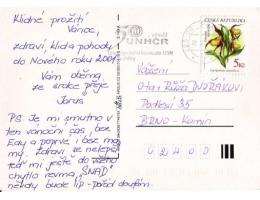 Klidné prožití
Vánoc,
zdraví, klid a pohodu
do Nového roku 2001
Vám oběma
ze srdce přeje
Jarus
PS: Je mi smutno v
ten vánoční čas, bez
Edy a poprvé i bez mej
mamy. Zdraví se nelepší
teď mi ještě do všeho
chytlo revma, "SNAD"
někdy bude líp - pořád doufám.
UNHCR
ČESKÁ REPUBLIKA
5Kč
Vážení
Ota i Růža DVOŘÁKOVI
Podlesí 35
BRNO - Komín
62400